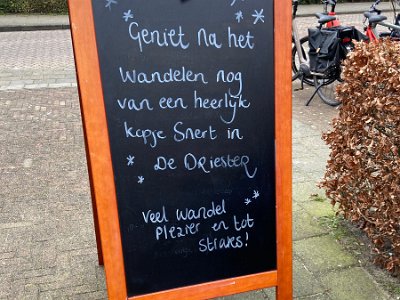 Geniet na het
Wandelen nog
van een heerlijk
kopje Snert in
De Driester
Veel wandel
Plezier en tot
straks!